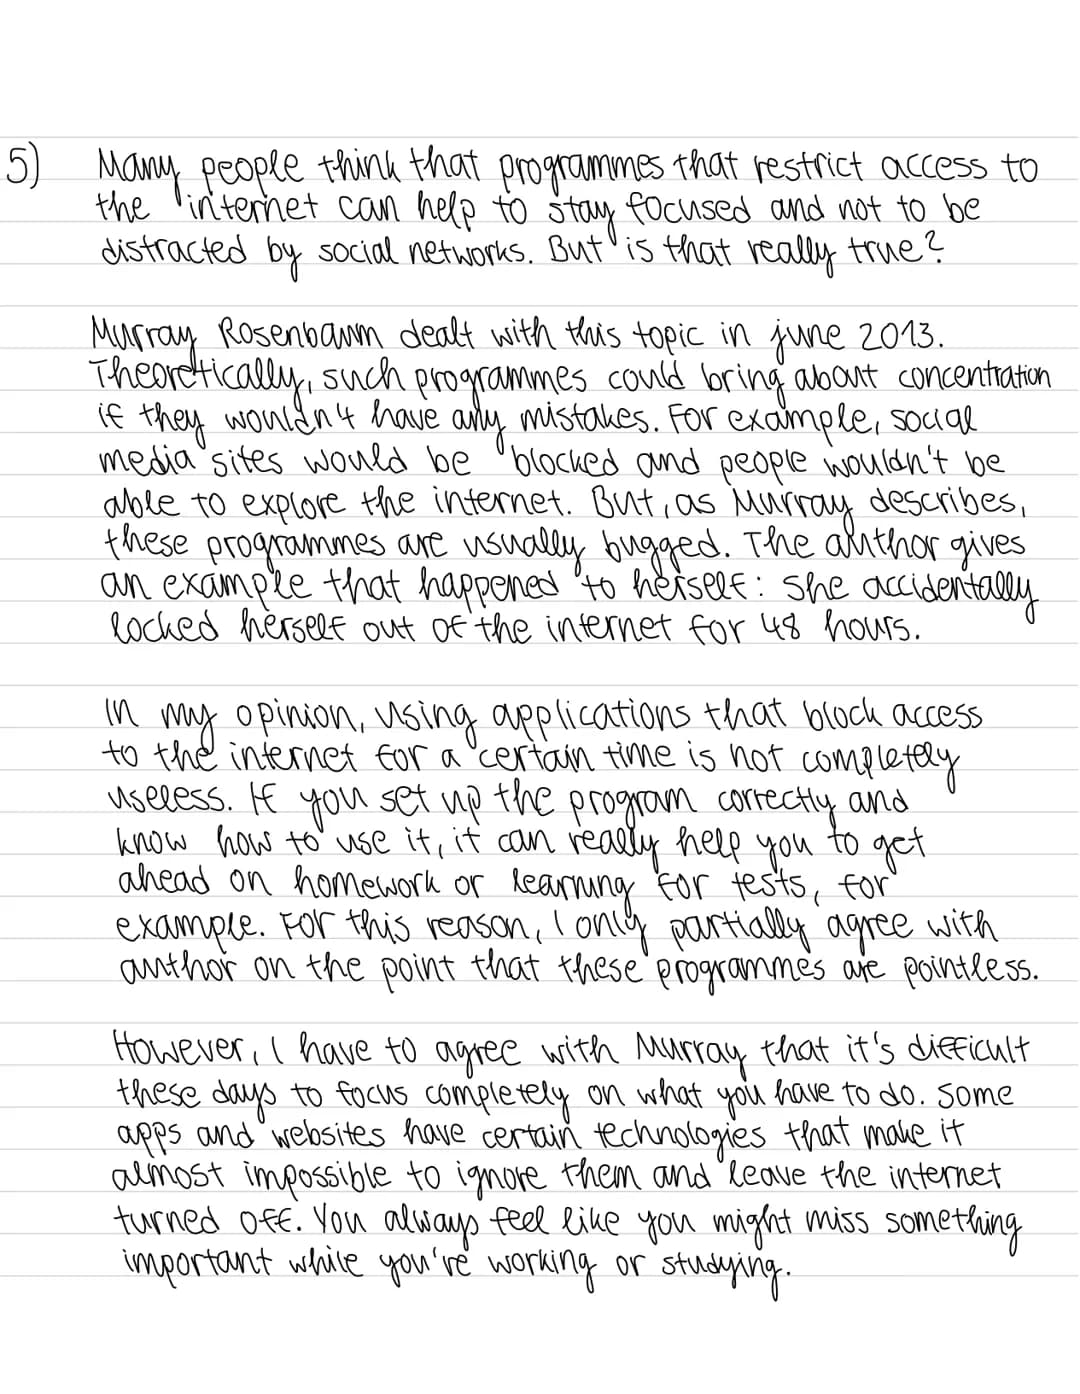 5) Many people think that programmes that restrict access to
the internet can help to stay focused and not to be
distracted by social networks. But is that really true?
Murray Rosenbaum dealt with this topic in june 2013.
Theoretically, such programmes could bring about concentration
if they wouldn't have any mistakes. For example, social
media sites would be blocked and people wouldn't be
able to explore the internet. But, as Murray describes,
these programmes are usually bugged. The author gives
an example that happened to herself: she accidentally
locked herself out of the internet for 48 hours.
In my opinion, using applications that block access
to the internet for a certain time is not completely
useless. If you set up the program correctly and
know how to use it, it can really help you to get
ahead on homework or learning for tests, for
example. For this reason, I only partially agree with
author on the point that these programmes are pointless.
However, I have to agree with Murray that it's difficult
these days to focus completely on what you have to do. Some
apps and websites have certain technologies that make it
almost impossible to ignore them and leave the internet
turned off. You always feel like you might miss something
important while you're working or studying.